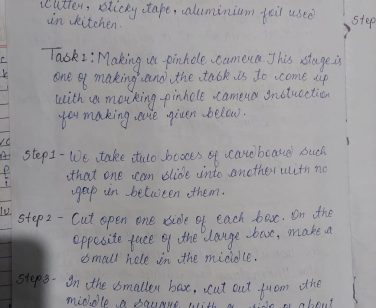 cutter, sticky tape, aluminium foil used
in kitchen.
Step
Task 1: Making a pinhole camera. This stage is
one of making and the task is to come up
with a morking pinhole camera Instruction
for making are given below.
Step 1 - We take two boxes of cardboard such
that one can slide into another with no
gap in between them.
Step 2 - Cut open one side of each box. On the
opposite face of the large box, make a
small hole in the middle.
Step 3 - In the smaller box, cut out from the
middle a square with a side of about